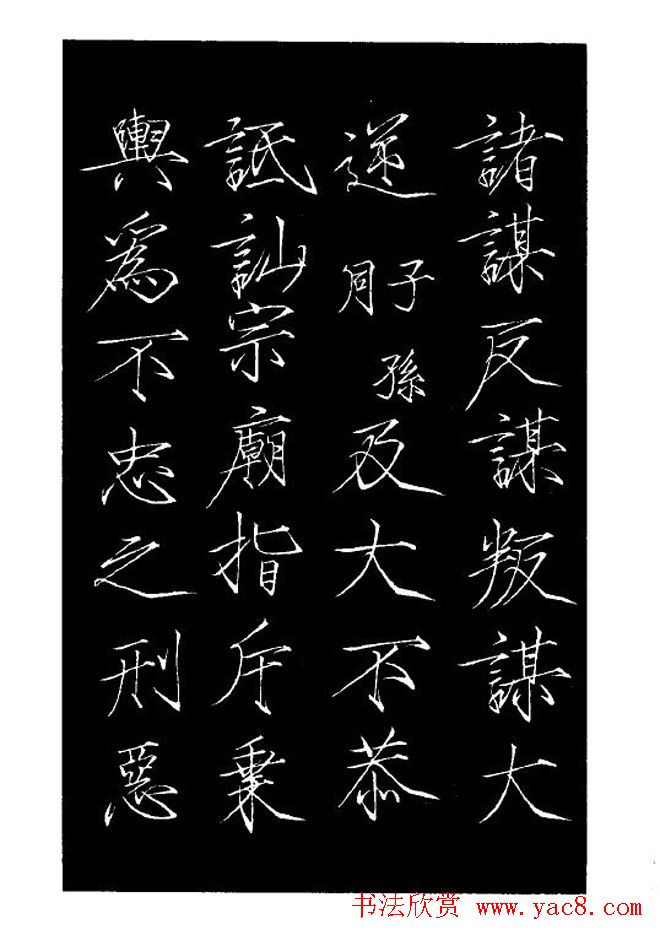 諸謀反謀叛謀大
逆子孫同及大不恭
詆訕宗廟指斥乗
輿為不忠之刑惡
书法欣赏 www.yac8.com